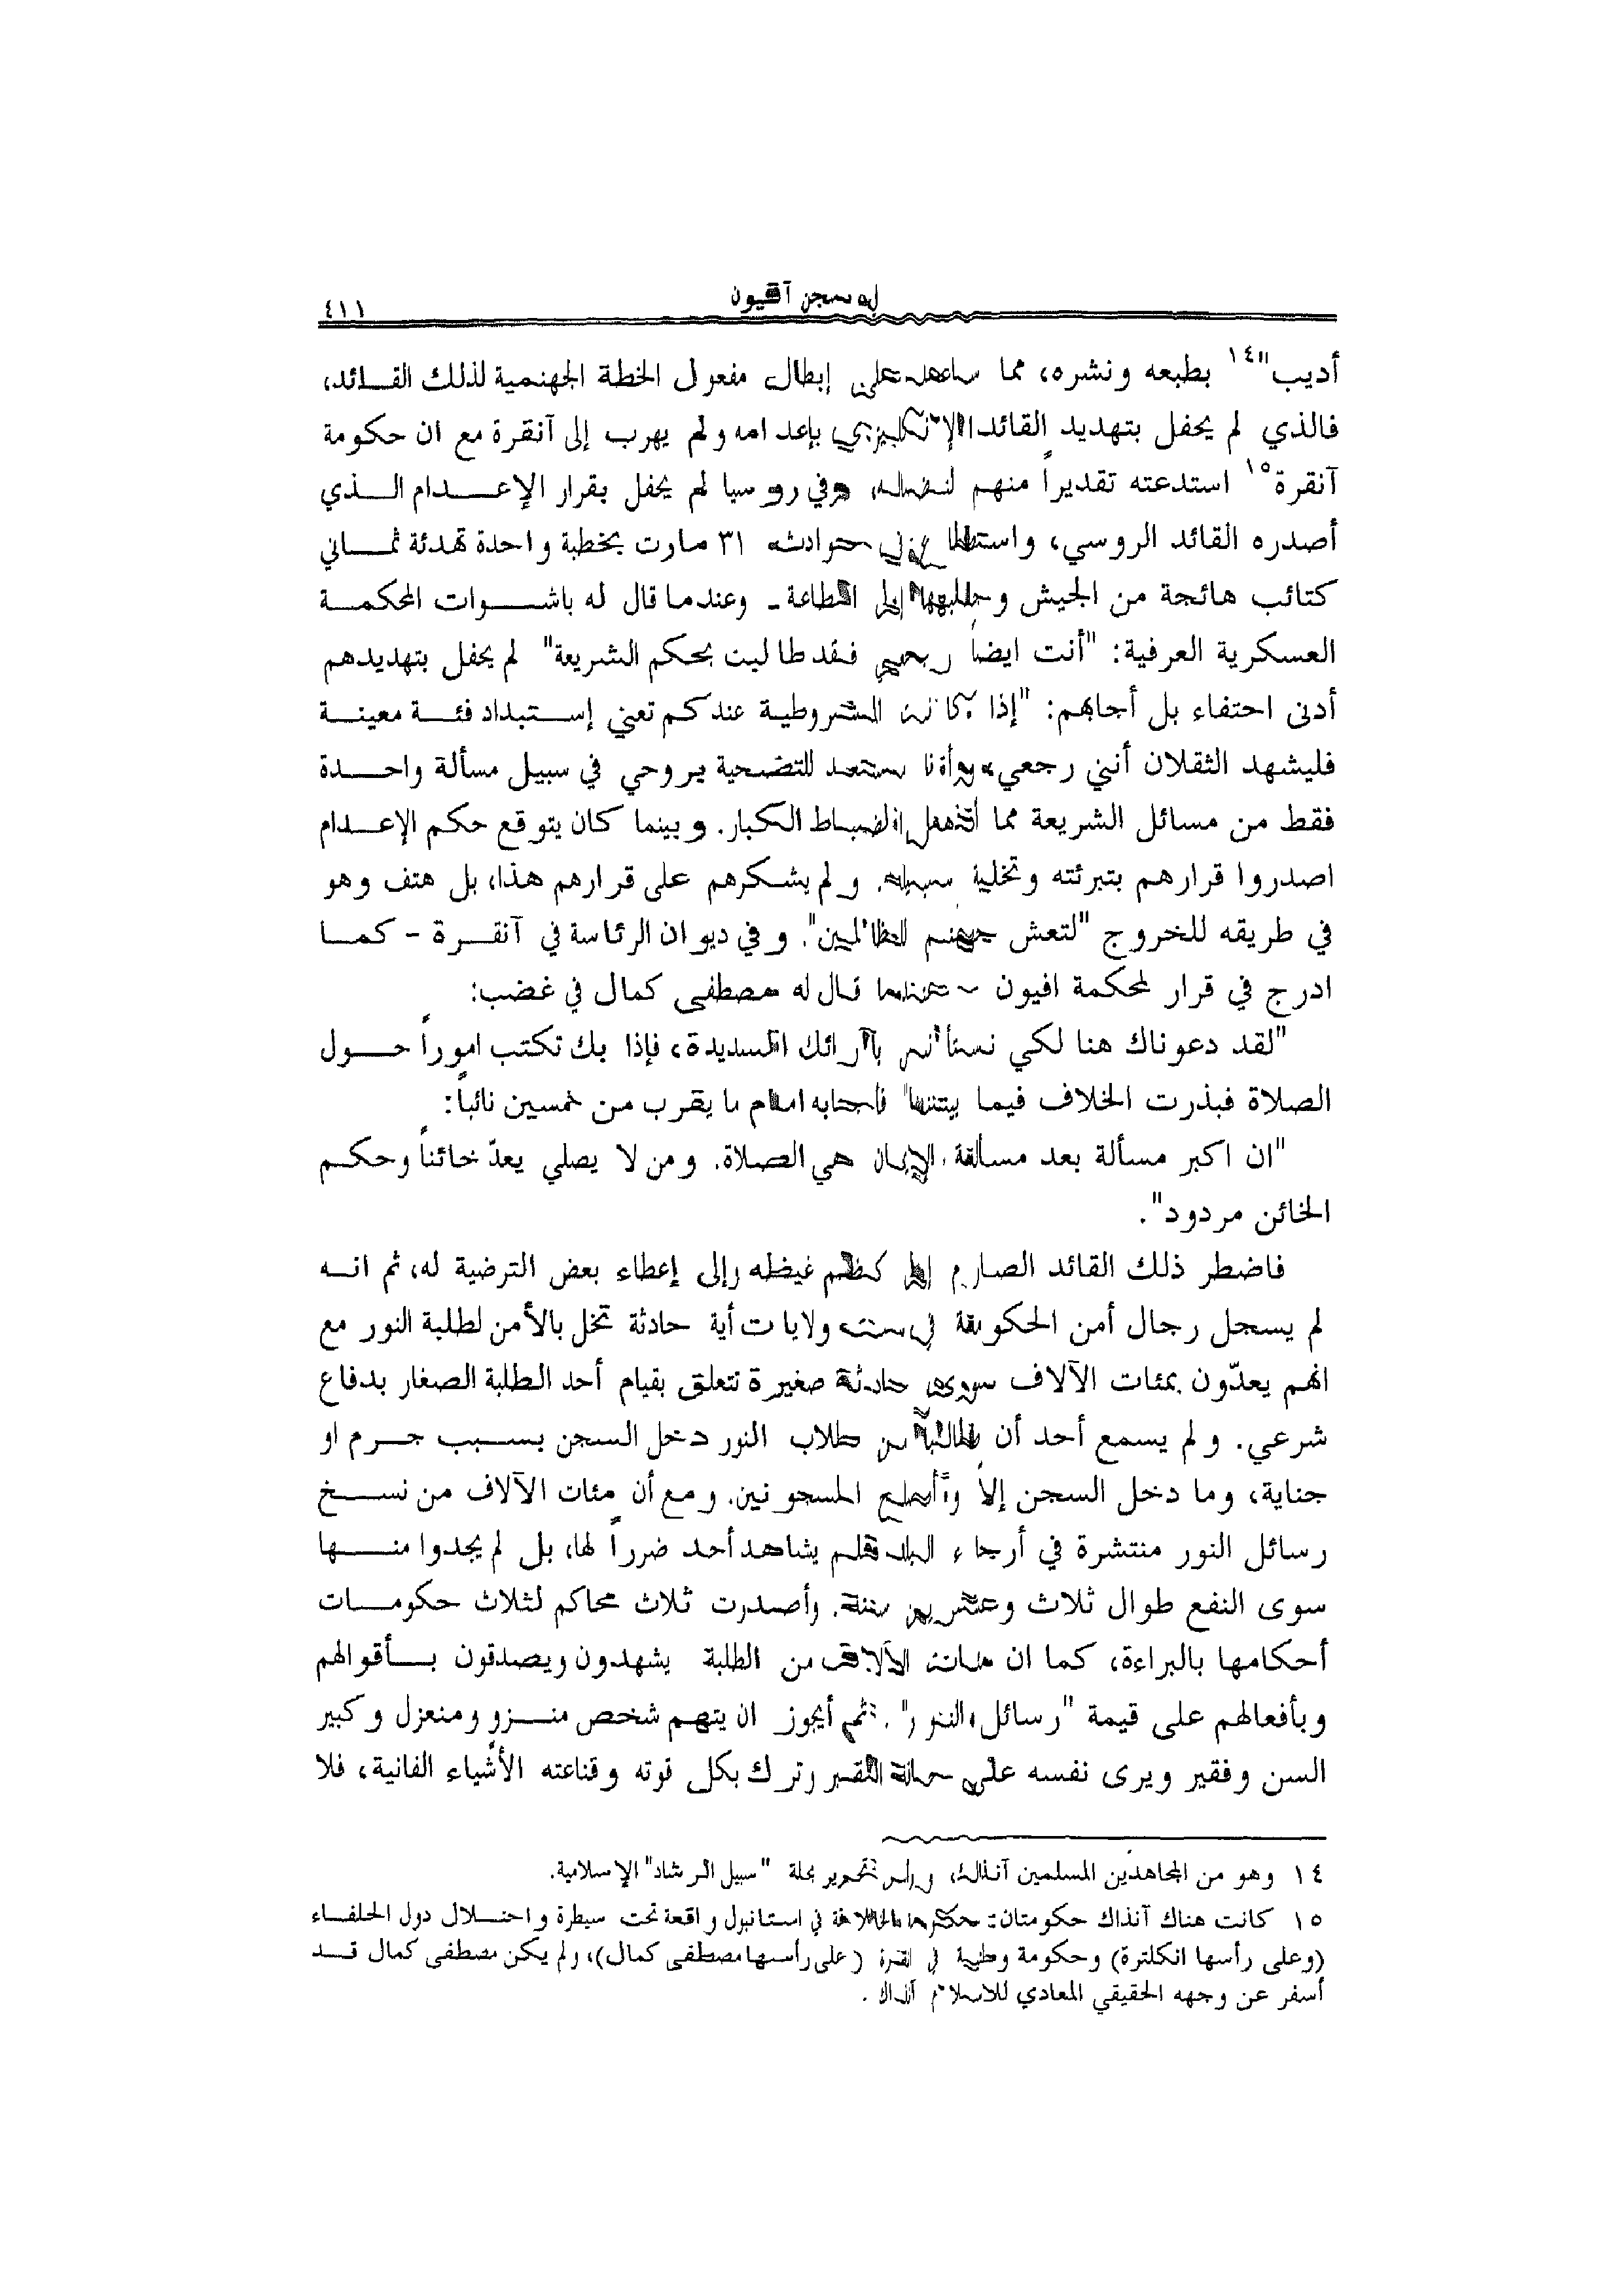 سجن آفيون ٤١١
أديب"١٤ بطبعه ونشره، مما ساعد على إبطال مفعول الخطة الجهنمية لذلك القـائد،
فالذي لم يحفل بتهديد القائد الإنكليزي بإعدامه ولم يهرب إلى آنقرة مع ان حكومة
آنقرة١٥ استدعته تقديراً منهم لنضاله، وفي روسيا لم يحفل بقرار الإعـــدام الـــذي
أصدره القائد الروسي، واستطاع في حوادث ٣١ مارت بخطبة واحدة تهدئة ثمــاني
كتائب هائجة من الجيش وجلبهها إلى الطاعة - وعندما قال له باشــوات المحكمــة
العسكرية العرفية: "أنت ايضاً رجعي فقد طالبت بحكم الشريعة" لم يحفل بتهديدهم
أدنى احتفاء بل أجابهم: "إذا كانت المشروطية عندكم تعني إستبداد فئـة معينـة
فليشهد الثقلان أنني رجعي، وأنا مستعد للتضحية بروحي في سبيل مسألة واحـدة
فقط من مسائل الشريعة مما أذهل الضباط الكبار. وبينما كان يتوقع حكم الإعـدام
اصدروا قرارهم بتبرئته وتخلية سبيله. ولم يشكرهم على قرارهم هذا، بل هتف وهو
في طريقه للخروج "لتعش جهنم للظالمين". وفي ديوان الرئاسة في آنقــرة - كمــا
ادرج في قرار لمحكمة افيون - عندما قال له مصطفى كمال في غضب:
"لقد دعوناك هنا لكي نستأنس بآرائك السديدة، فإذا بك تكتب اموراً حــول
الصلاة فبذرت الخلاف فيما بيننا" فأجابه امام ما يقرب من خمسين نائباً:
"ان اكبر مسألة بعد مسألة الإيمان هي الصلاة. ومن لا يصلي يعدّ خائناً وحكـم
الخائن مردود".
فاضطر ذلك القائد الصارم إلى كظم غيظه وإلى إعطاء بعض الترضية له، ثم انــه
لم يسجل رجال أمن الحكومة في ست ولايات أية حادثة تخل بالأمن لطلبة النور مع
انهم يعدّون بمئات الآلاف سوى حادثة صغيرة تتعلق بقيام أحد الطلبة الصغار بدفاع
شرعي. ولم يسمع أحد أن طالباً من طلاب النور دخل السجن بسبب جــرم او
جناية، وما دخل السجن إلا وأصلح المسجونين. ومع أن مئات الآلاف من نســخ
رسائل النور منتشرة في أرجاء البلد فلم يشاهد أحد ضرراً لها، بل لم يجدوا منــها
سوى النفع طوال ثلاث وعشرين سنة. وأصدرت ثلاث محاكم لثلاث حكومــات
أحكامها بالبراءة، كما ان مئات الآلاف من الطلبة يشهدون ويصدقون بــأقوالهم
وبأفعالهم على قيمة "رسائل النور". ثم أيجوز ان يتهم شخص منــزو ومنعزل وكبير
السن وفقير ويرى نفسه على حافة القبر وترك بكل قوته وقناعته الأشياء الفانية، فلا
١٤ وهو من المجاهدين المسلمين آنذاك، ورأس تحرير مجلة "سبيل الرشاد" الإسلامية.
١٥ كانت هناك آنذاك حكومتان: حكومة الخلافة في استانبول واقعة تحت سيطرة واحتـلال دول الحلفـاء
(وعلى رأسها انكلترة) وحكومة وطنية في انقرة (على رأسها مصطفى كمال)، ولم يكن مصطفى كمال قــد
أسفر عن وجهه الحقيقي المعادي للاسلام آنذاك.